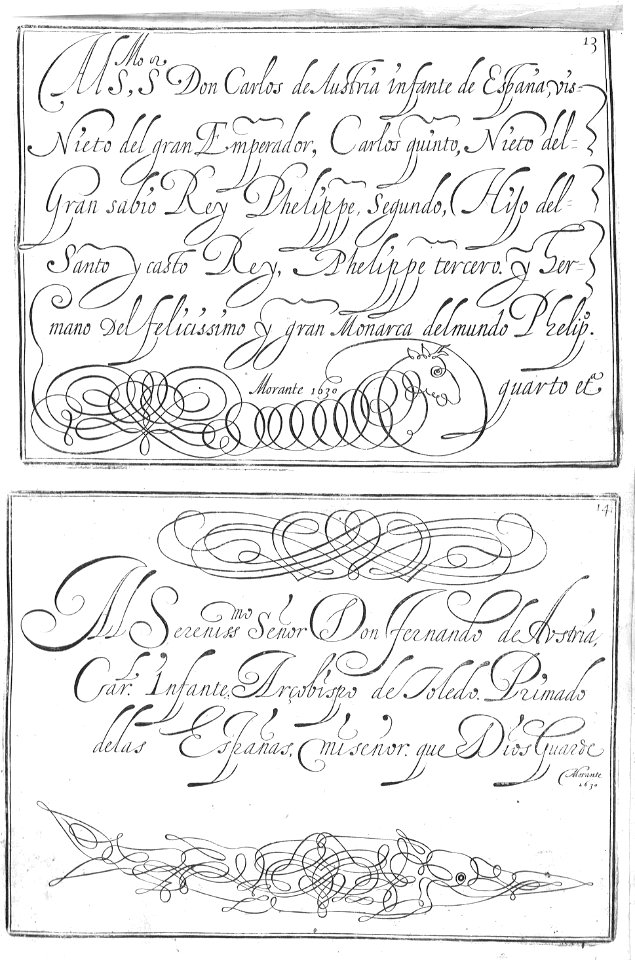 13
Al S.mo S.or Don Carlos de Austria infante de España, vis=
Nieto del gran Emperador, Carlos quinto, Nieto del=
Gran sabio Rey Phelippe, Segundo, Hijo del=
Santo y casto Rey, Phelippe tercero. y Her=
mano del felicissimo y gran Monarca del mundo Phelip.
Morante 1630
quarto etc
14.
Al Sereniss.mo Señor Don Fernando de Avstria,
Car.l Infante, Arçobispo de Toledo. Primado
delas Españas, mi señor. que Dios Guarde
Morante
1630